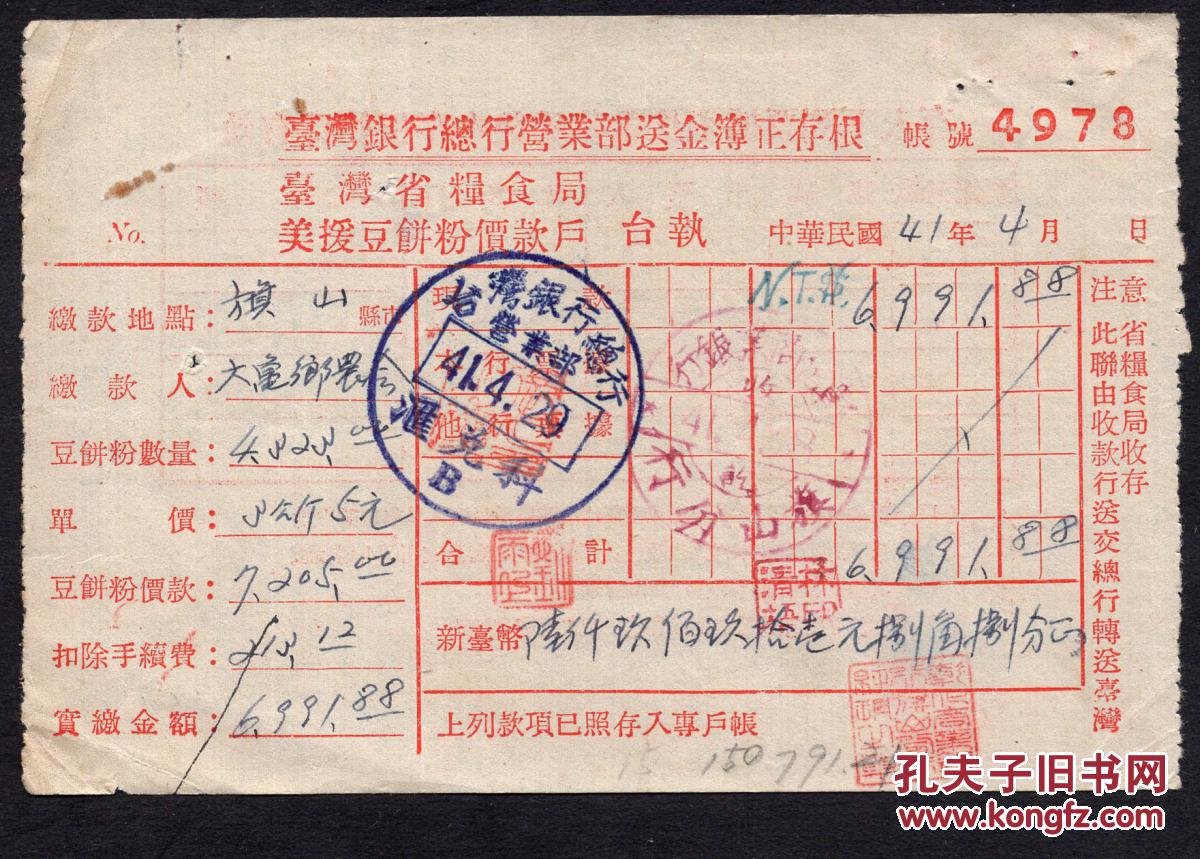 臺灣銀行總行營業部送金簿正存根
帳號 4978
臺灣省糧食局
美援豆餅粉價款戶 台執
No.
中華民國 41 年 4 月 日
繳款地點: 旗山 縣市
繳款人:
豆餅粉數量:
單價: 5元
豆餅粉價款: 7,205.00
扣除手續費: 12
實繳金額: 6,991.88
現 款
行
他行 據
N.T.$. 6,991.88
合計 6,991.88
新臺幣 陸仟玖佰玖拾壱元捌角捌分正
上列款項已照存入專戶帳
150791.
注意 此聯由收款行送交總行轉送臺灣
省糧食局收存
台灣銀行總行
營業部
41.4.29
匯兌科
B
旗山分行
孔夫子旧书网
www.kongfz.com